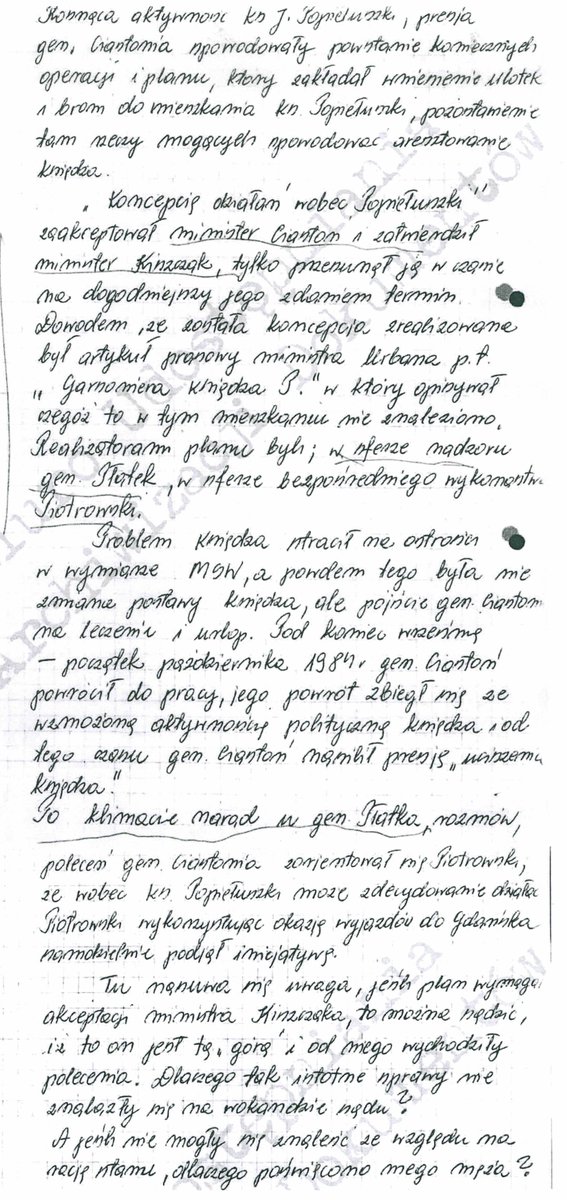 Rosnąca aktywność ks J. Popiełuszki, presja
gen. Ciastonia spowodowały powstanie koniecznych
operacji i planu, który zakładał wniesienie ulotek
i broni do mieszkania ks. Popiełuszki, pozostawienie
tam rzeczy mogących spowodować aresztowanie
księdza.
„Koncepcję działań wobec Popiełuszki”
zaakceptował minister Ciastoń i zatwierdził
minister Kiszczak, tylko przesunął ją w czasie
na dogodniejszy jego zdaniem termin.
Dowodem, że została koncepcja zrealizowana
był artykuł prasowy ministra Urbana p.t.
„Garsoniera księdza P.” w który opisywał
czegóż to w tym mieszkaniu nie znaleziono.
Realizatorami planu byli; w sferze nadzoru
gen. Płatek, w sferze bezpośredniego wykonawstwa
Piotrowski.
Problem księdza stracił na ostrości
w wymiarze MSW, a powodem tego była nie
zmiana postawy księdza, ale pójście gen. Ciastonia
na leczenie i urlop. Pod koniec września
– początek października 1984 r gen. Ciastoń
powrócił do pracy, jego powrót zbiegł się ze
wzmożoną aktywnością polityczną księdza i od
tego czasu gen. Ciastoń nasilił presję „uciszenia
księdza.”
Po klimacie narad u gen. Płatka, rozmów,
poleceń gen. Ciastonia zorientował się Piotrowski,
że wobec ks. Popiełuszki może zdecydowanie działać
Piotrowski wykorzystując okazję wyjazdów do Gdańska
samodzielnie podjął inicjatywę.
Tu nasuwa się uwaga, jeśli plan wymagał
akceptacji ministra Kiszczaka, to można sądzić,
iż to on jest tą „górą” i od niego wychodziły
polecenia. Dlaczego tak istotne sprawy nie
znalazły się na wokandzie sądu?
A jeśli nie mogły się znaleść ze względu na
rację stanu, dlaczego poświęcono mego męża?